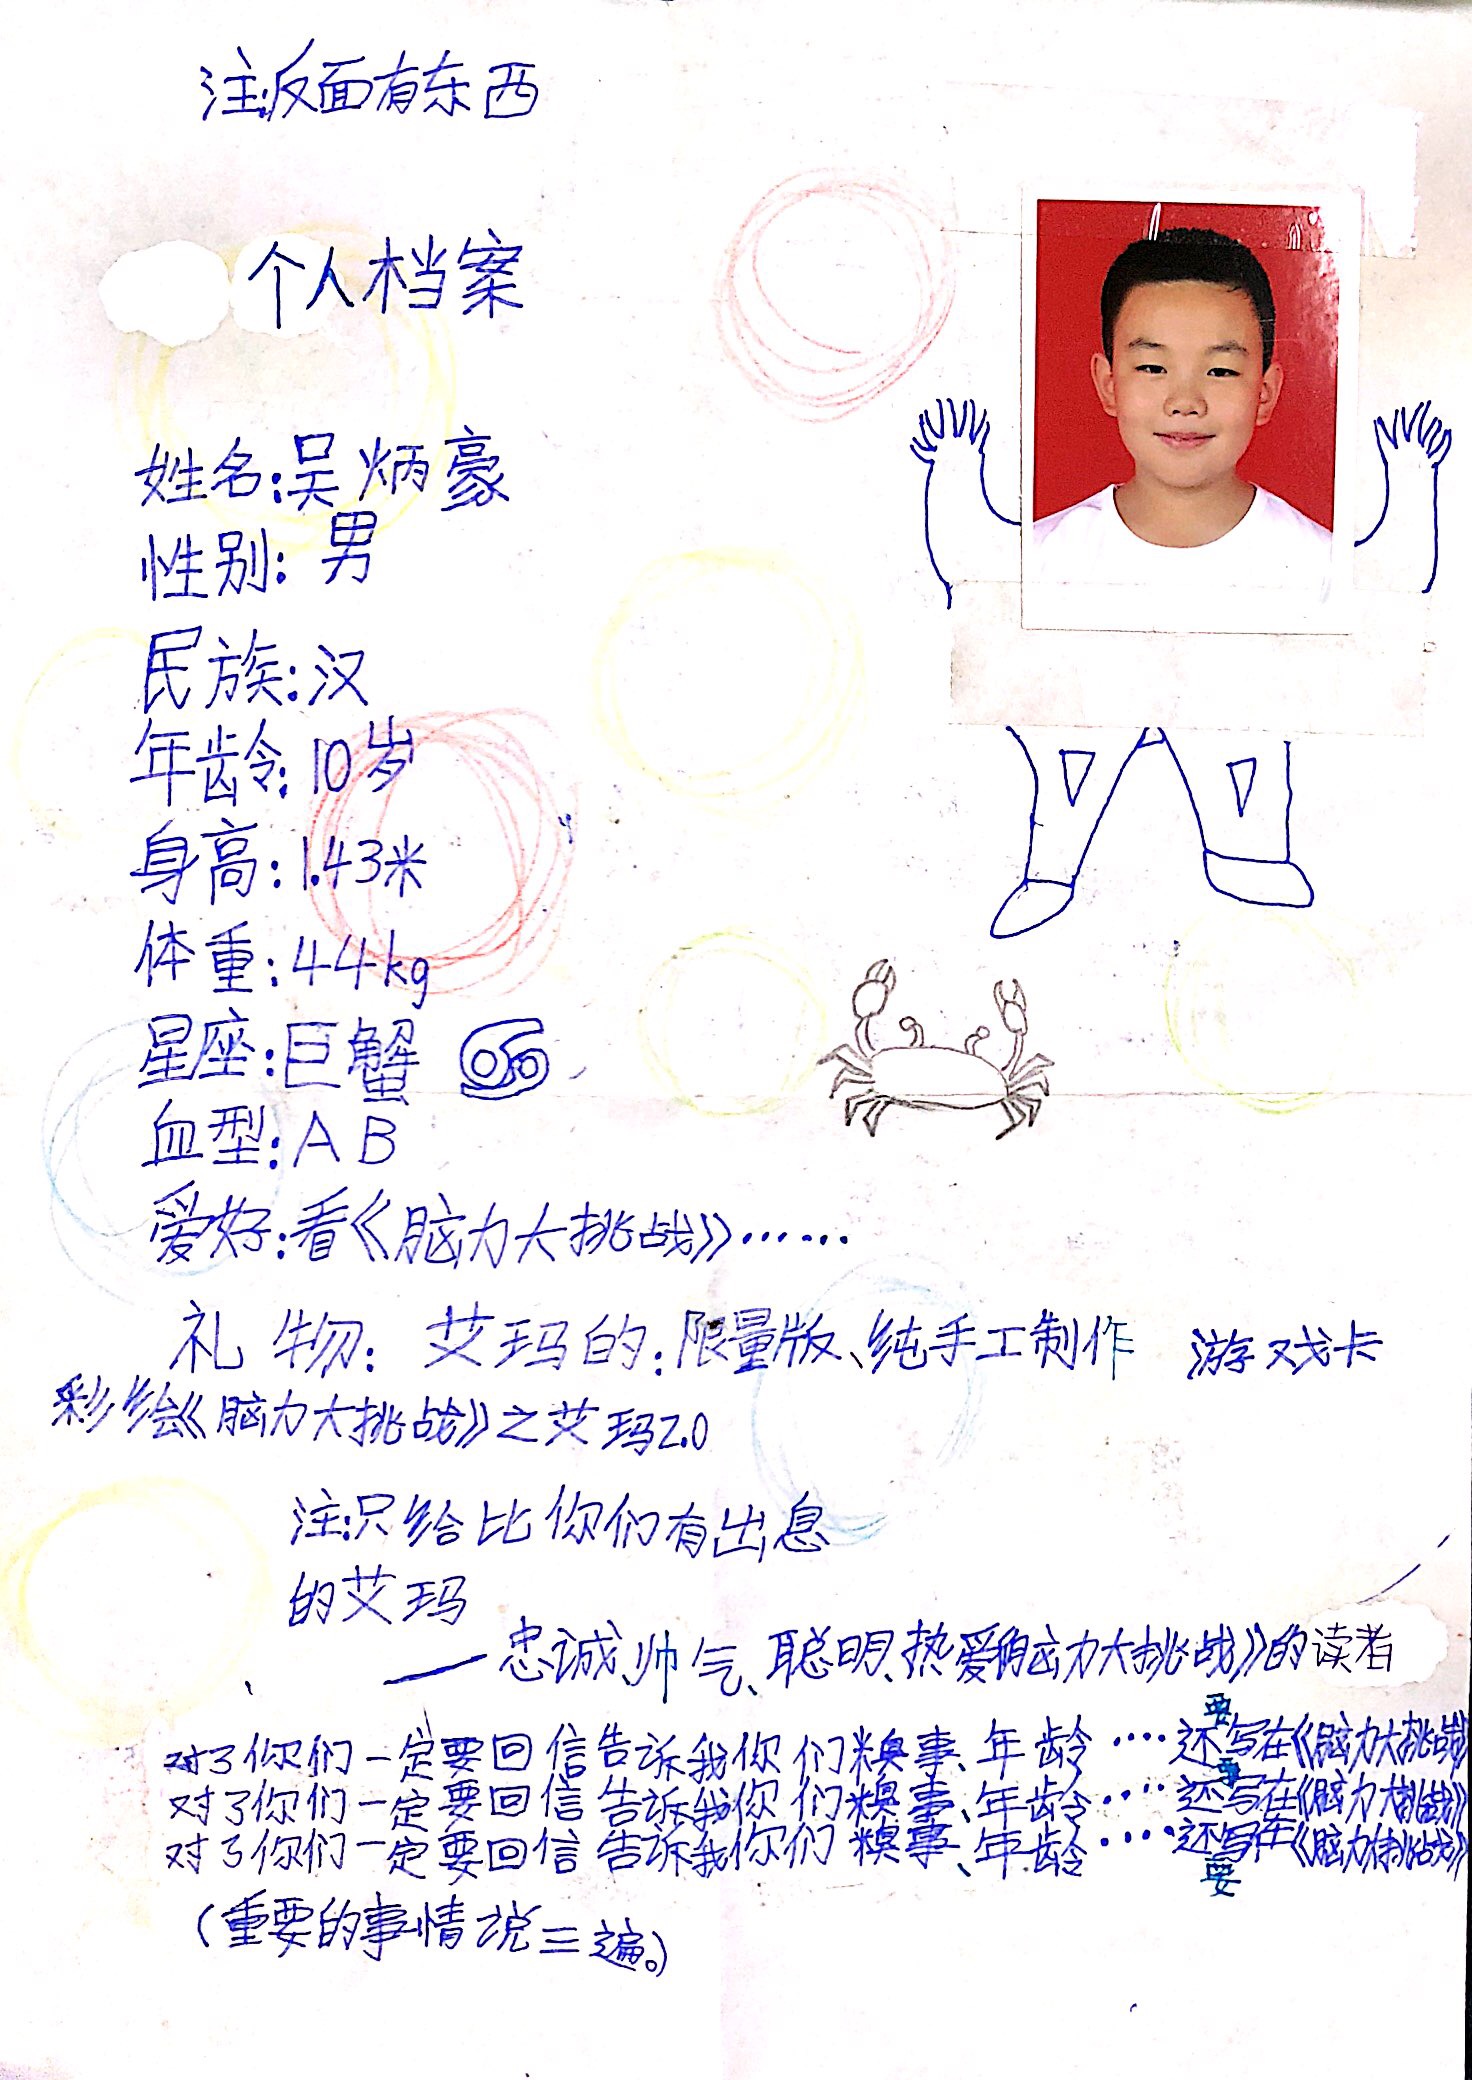 注:反面有东西
个人档案
姓名:吴炳豪
性别:男
民族:汉
年龄:10岁
身高:1.43米
体重:44kg
星座:巨蟹 ♋
血型:AB
爱好:看《脑力大挑战》……
礼物:艾玛的:限量版、纯手工制作 游戏卡
彩绘《脑力大挑战》之艾玛2.0
注:只给比你们有出息
的艾玛
——忠诚、帅气、聪明、热爱《脑力大挑战》的读者
对了你们一定要回信告诉我你们糗事、年龄····还要写在《脑力大挑战》
对了你们一定要回信告诉我你们糗事、年龄····还要写在《脑力大挑战》
对了你们一定要回信告诉我你们糗事、年龄····还要写在《脑力大挑战》
(重要的事情说三遍。)